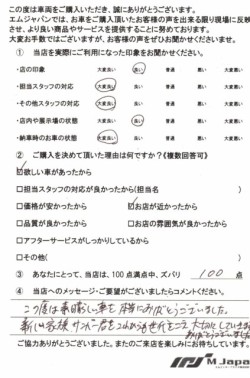 この度は車両をご購入いただき、誠にありがとうございます。
エムジャパンでは、お車をご購入頂いたお客様の声を出来る限り現場に反映
させ、より良い商品やサービスを提供することに努めております。
大変お手数ではございますが、お客様の声をぜひお聞かせくださいませ。
① 当店を実際にご利用になった印象をお聞かせください。
・店の印象 大変良い 良い 普通 悪い 大変悪い
・担当スタッフの対応 大変良い 良い 普通 悪い 大変悪い
・その他スタッフの対応 大変良い 良い 普通 悪い 大変悪い
・店内や展示場の状態 大変良い 良い 普通 悪い 大変悪い
・納車時のお車の状態 大変良い 良い 普通 悪い 大変悪い
② ご購入を決めて頂いた理由は何ですか?《複数回答可》
☑欲しい車があったから
□担当スタッフの対応が良かったから(担当名 )
□価格が安かったから ☑お店が近かったから
□品質が良かったから □お店の雰囲気が良かったから
□アフターサービスがしっかりしているから
□その他( )
③ あなたにとって、当店は、100点満点中、ズバリ 100 点
④ 当店へのメッセージ・ご要望がございましたらコメントください。
この度は素晴しい車を
ありがとうございました。
ご協力ありがとうございました。またのご来店を楽しみにお待ちしています。
M Japan